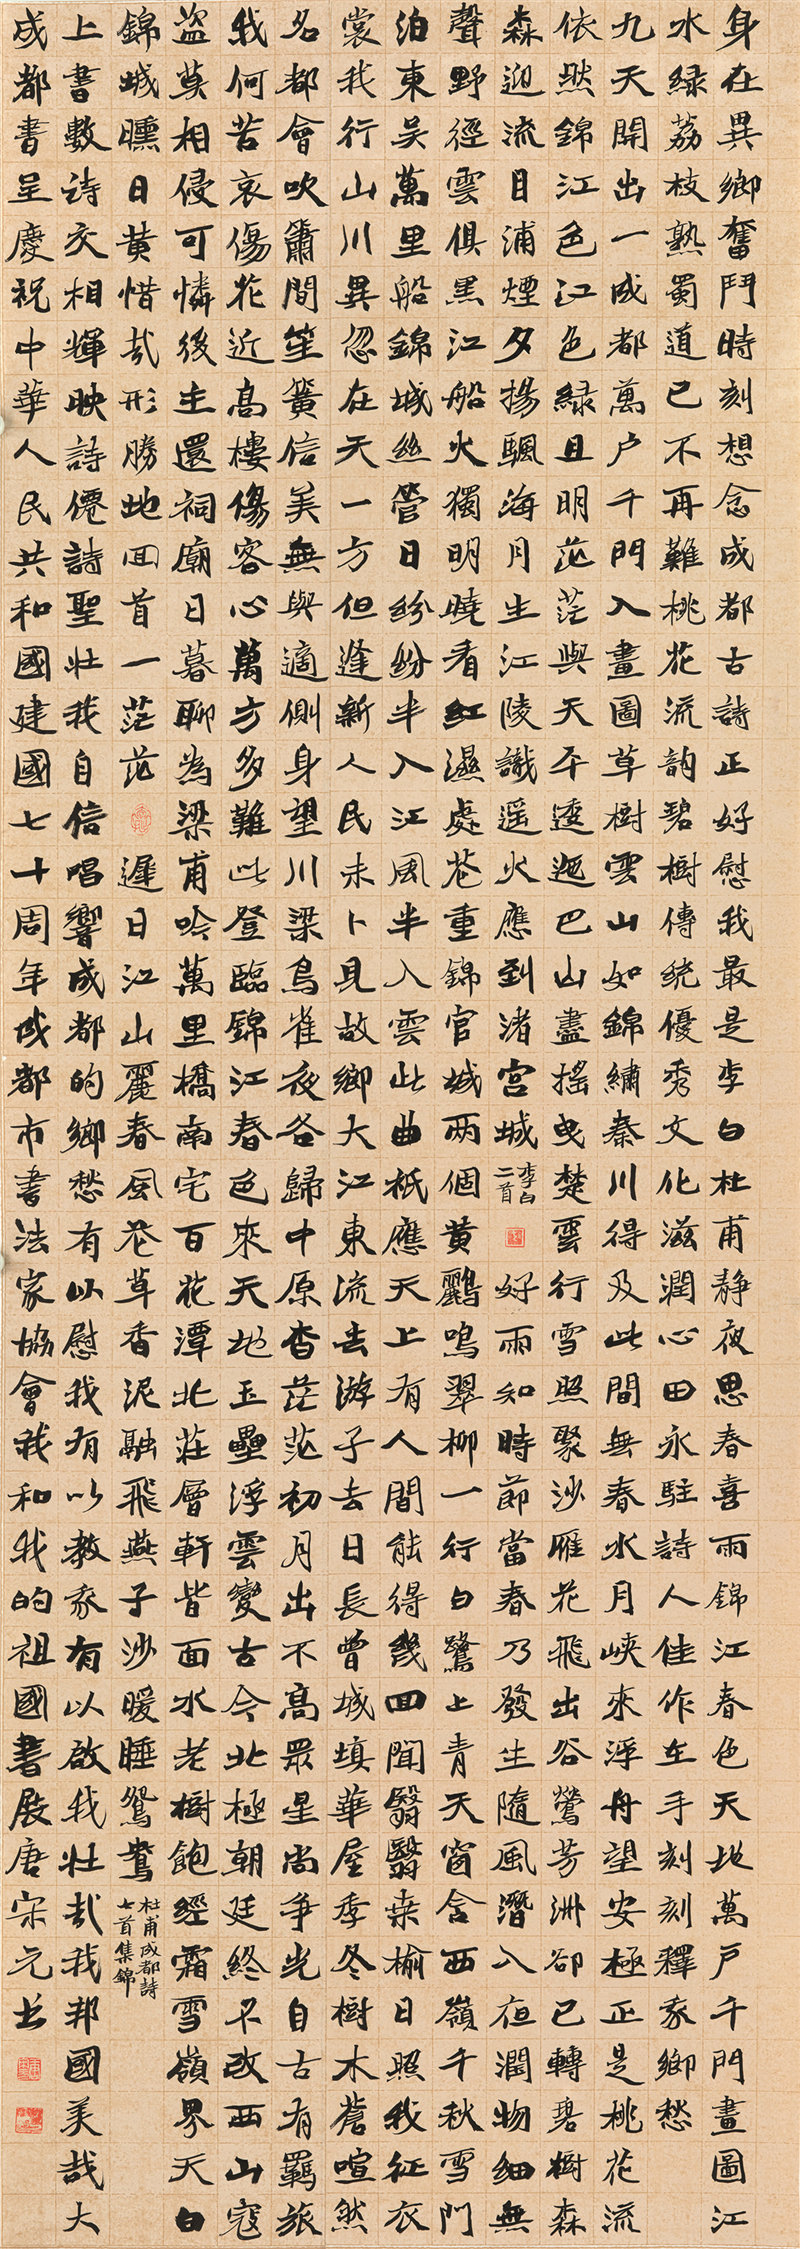 身在異鄉奮鬥時刻想念成都古詩正好慰我最是李白杜甫靜夜思春喜雨錦江春色天地萬戶千門畫圖江
水綠荔枝熟蜀道已不再難桃花流韵碧樹傳統優秀文化滋潤心田永駐詩人佳作在手刻刻釋家鄉愁
九天開出一成都萬户千門入畫圖草樹雲山如錦繡秦川得及此間無春水月峽來浮舟望安極正是桃花流
依然錦江色江色綠且明茫茫與天平逶迤巴山盡搖曳楚雲行雪照聚沙雁花飛出谷鶯芳洲卻已轉碧樹森
森迎流目浦煙夕揚颿海月生江陵識遥火應到渚宮城李白二首好雨知時節當春乃發生隨風潛入夜潤物細無
聲野徑雲俱黑江船火獨明曉看紅濕處花重錦官城兩個黃鸝鳴翠柳一行白鷺上青天窗含西嶺千秋雪門
泊東吴萬里船錦城絲管日紛紛半入江風半入雲此曲衹應天上有人間能得幾回聞翳翳桑榆日照我征衣
裳我行山川異忽在天一方但逢新人民未卜見故鄉大江東流去游子去日長曾城填華屋季冬樹木蒼喧然
名都會吹簫間笙簧信美無與適側身望川梁鳥雀夜各歸中原杳茫茫初月出不高眾星尚爭光自古有羈旅
我何苦哀傷花近高樓傷客心萬方多難此登臨錦江春色來天地玉壘浮雲變古今北極朝廷終不改西山寇
盜莫相侵可憐後主還祠廟日暮聊為梁甫吟萬里橋南宅百花潭北莊層軒皆面水老樹飽經霜雪嶺界天白
錦城曛日黃惜哉形勝地回首一茫茫遲日江山麗春風花草香泥融飛燕子沙暖睡鴛鴦杜甫成都詩七首集錦
上書數詩交相輝映詩僊詩聖壯我自信唱響成都的鄉愁有以慰我有以教家有以啟我壯哉我邦國美哉大
成都書呈慶祝中華人民共和國建國七十周年成都市書法家協會我和我的祖國書展唐宋元书